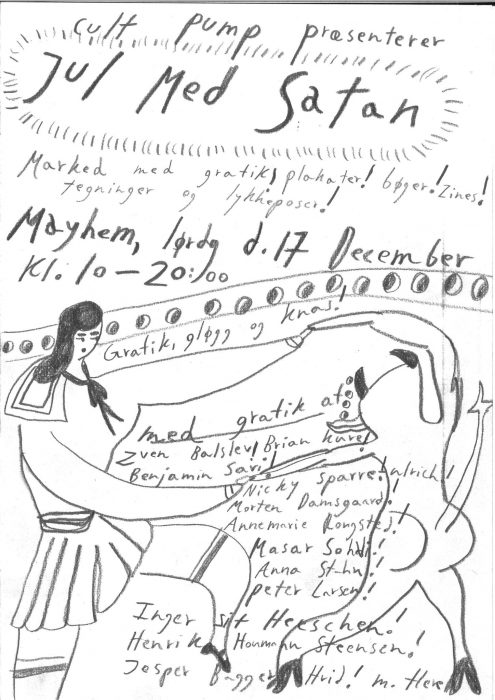 Cult Pump præsenterer
Jul Med Satan
Marked med grafik, plakater! bøger! Zines!
tegninger og lykkeposer!
Mayhem, lørdg d.17 December
Kl. 10 - 20:00
Grafik, gløgg og knas!
med grafik af
Zven Balslev! Brian kure!
Benjamin Savi!
Nicky Sparre!
Morten Damsgaard!
Annemarie
Masar Sohdi!
Anna
Peter Larsen!
Inger
Henrik Houmann Steensen!
Jesper Bagger Hvid! m. flere